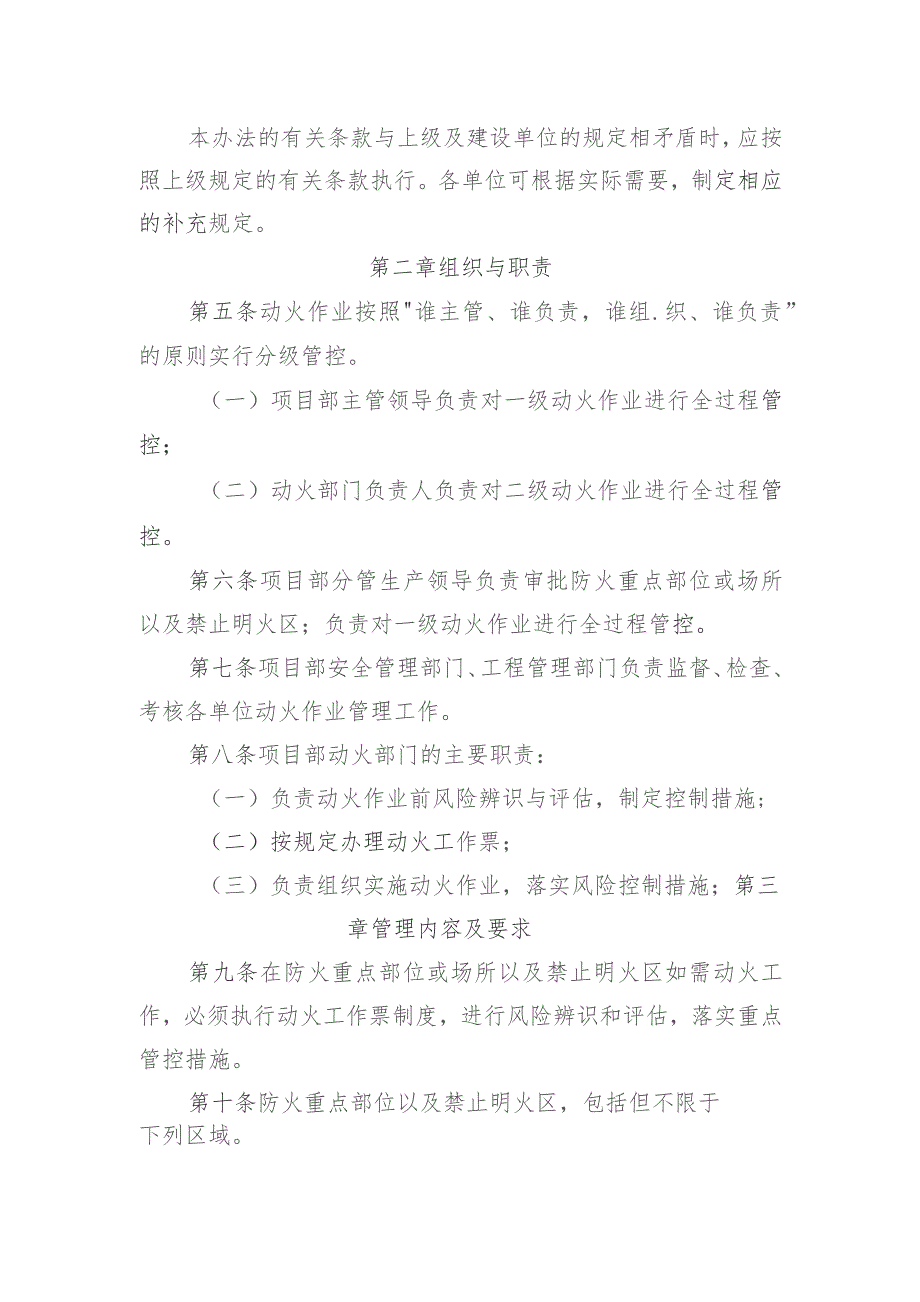 本办法的有关条款与上级及建设单位的规定相矛盾时，应按
照上级规定的有关条款执行。各单位可根据实际需要，制定相应
的补充规定。
第二章组织与职责
第五条动火作业按照"谁主管、谁负责，谁组.织、谁负责”
的原则实行分级管控。
（一）项目部主管领导负责对一级动火作业进行全过程管
控；
（二）动火部门负责人负责对二级动火作业进行全过程管
控。
第六条项目部分管生产领导负责审批防火重点部位或场所
以及禁止明火区；负责对一级动火作业进行全过程管控。
第七条项目部安全管理部门、工程管理部门负责监督、检查、
考核各单位动火作业管理工作。
第八条项目部动火部门的主要职责：
（一）负责动火作业前风险辨识与评估，制定控制措施;
（二）按规定办理动火工作票；
（三）负责组织实施动火作业，落实风险控制措施；第三
章管理内容及要求
第九条在防火重点部位或场所以及禁止明火区如需动火工
作，必须执行动火工作票制度，进行风险辨识和评估，落实重点
管控措施。
第十条防火重点部位以及禁止明火区，包括但不限于
下列区域。